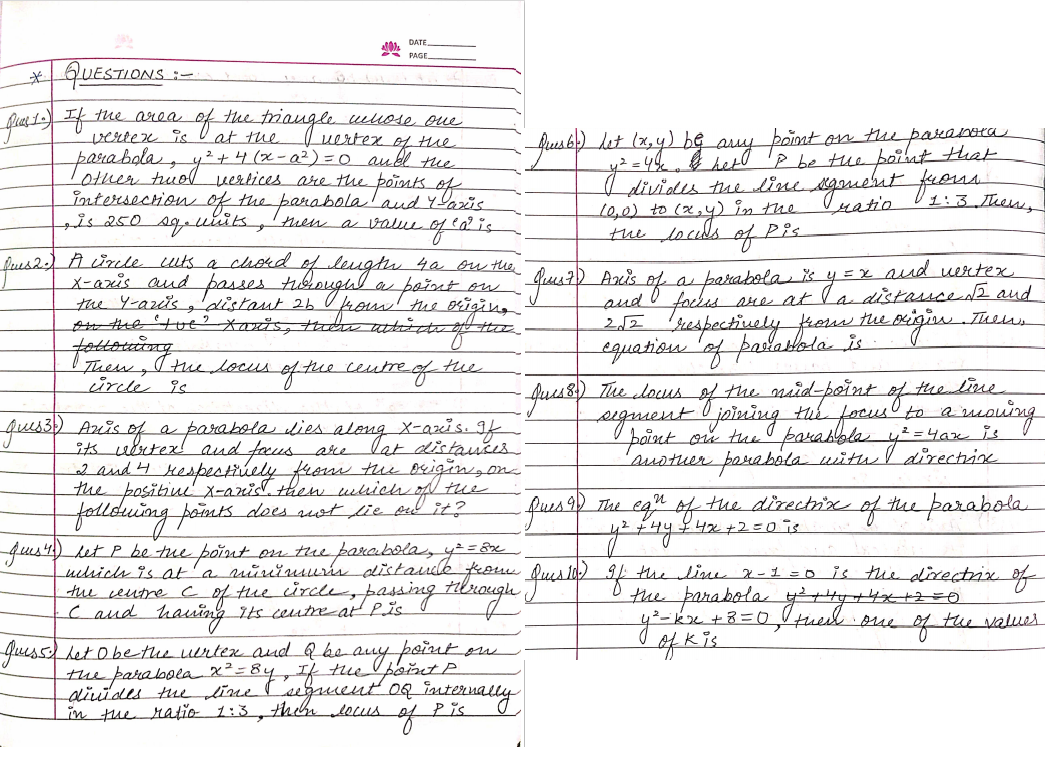 DATE
PAGE
* QUESTIONS :-
Ques1:) If the area of the triangle whose one
vertex is at the vertex of the
parabola, y² + 4(x - a²) = 0 and the
other two vertices are the points of
intersection of the parabola and Y-axis
, is 250 sq. units, then a value of 'a' is
Ques2:) A circle cuts a chord of length 4a on the
X-axis and passes through a point on
the Y-axis, distant 2b from the origin,
on the '+ve' X axis, then which of the
following
Then, the locus of the centre of the
circle is
Ques3:) Axis of a parabola lies along X-axis. If
its vertex and focus are at distances
2 and 4 respectively from the origin, on
the positive X-axis. then which of the
following points does not lie on it?
Ques4:) Let P be the point on the parabola, y² = 8x
which is at a minimum distance from
the centre C of the circle, passing through
C and having its centre at P is
Ques5:) Let O be the vertex and Q be any point on
the parabola x² = 8y, If the point P
divides the line segment OQ internally
in the ratio 1:3, then locus of P is
Ques6:) Let (x,y) be any point on the parabola
y² = 4x. Let P be the point that
divides the line sgment from
(0,0) to (x,y) in the ratio 1:3. Then,
the locus of P is
Ques7:) Axis of a parabola is y = x and vertex
and focus are at a distance √2 and
2√2 respectively from the origin. Then,
equation of parabola is
Ques8:) The locus of the mid-point of the line
segment joining the focus to a moving
point on the parabola y² = 4ax is
another parabola with directrix
Ques9:) The eqⁿ of the directrix of the parabola
y² + 4y + 4x + 2 = 0 is
Ques10:) If the line x - 1 = 0 is the directrix of
the parabola y² + 4y + 4x + 2 = 0
y² - kx + 8 = 0, then one of the values
of K is